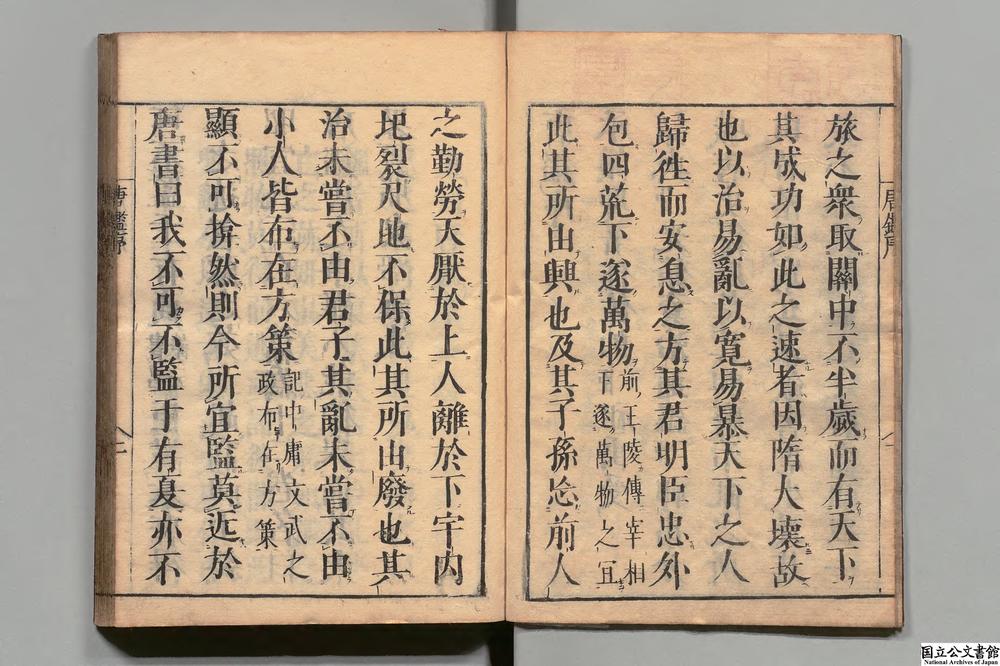 旅之衆取關中不半歲而有天下
其成功如此之速者因隋大壞故
也以治易亂以寛易暴天下之人
歸徃而安息之方其君明臣忠外
包四荒下遂萬物前王陵傳宰相下遂萬物之冝
此其所由興也及其子孫忘前人
之勤勞天厭於上人離於下宇内
圯裂尺地不保此其所由廢也其
治未嘗不由君子其亂未嘗不由
小人皆布在方策記中庸文武之政布在方策
顯不可揜然則今所宜監莫近於
唐書曰我不可不監于有夏亦不
唐鑑序
唐鑑序
国立公文書館
National Archives of Japan